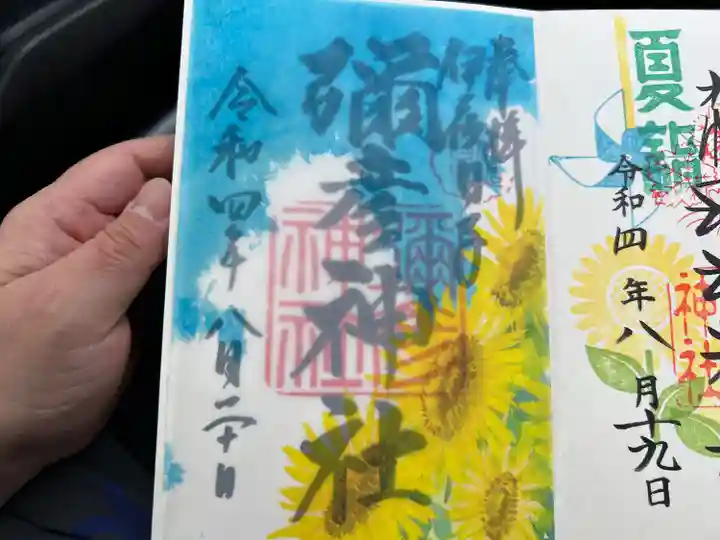 神社
夏詣
令和四年八月十九日
奉拝
伊夜日子
彌彦神社
令和四年八月二十日